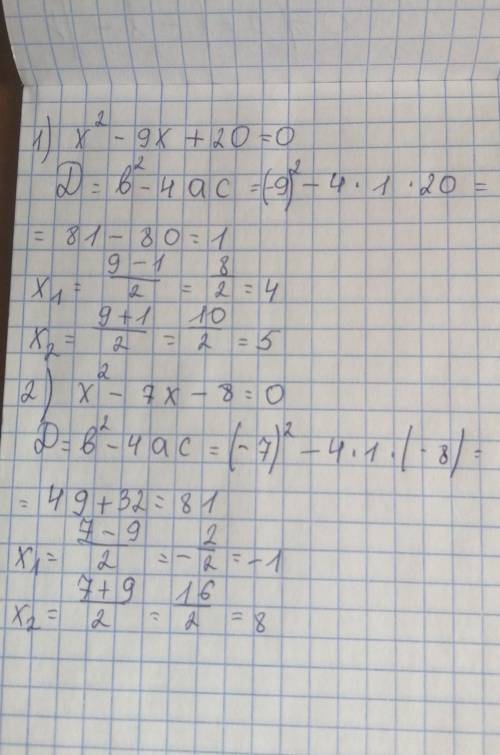 1) x² - 9x + 20 = 0
D = b² - 4ac = (-9)² - 4 · 1 · 20 =
= 81 - 80 = 1
x₁ = (9 - 1)/2 = 8/2 = 4
x₂ = (9 + 1)/2 = 10/2 = 5
2) x² - 7x - 8 = 0
D = b² - 4ac = (-7)² - 4 · 1 · (-8) =
= 49 + 32 = 81
x₁ = (7 - 9)/2 = -2/2 = -1
x₂ = (7 + 9)/2 = 16/2 = 8